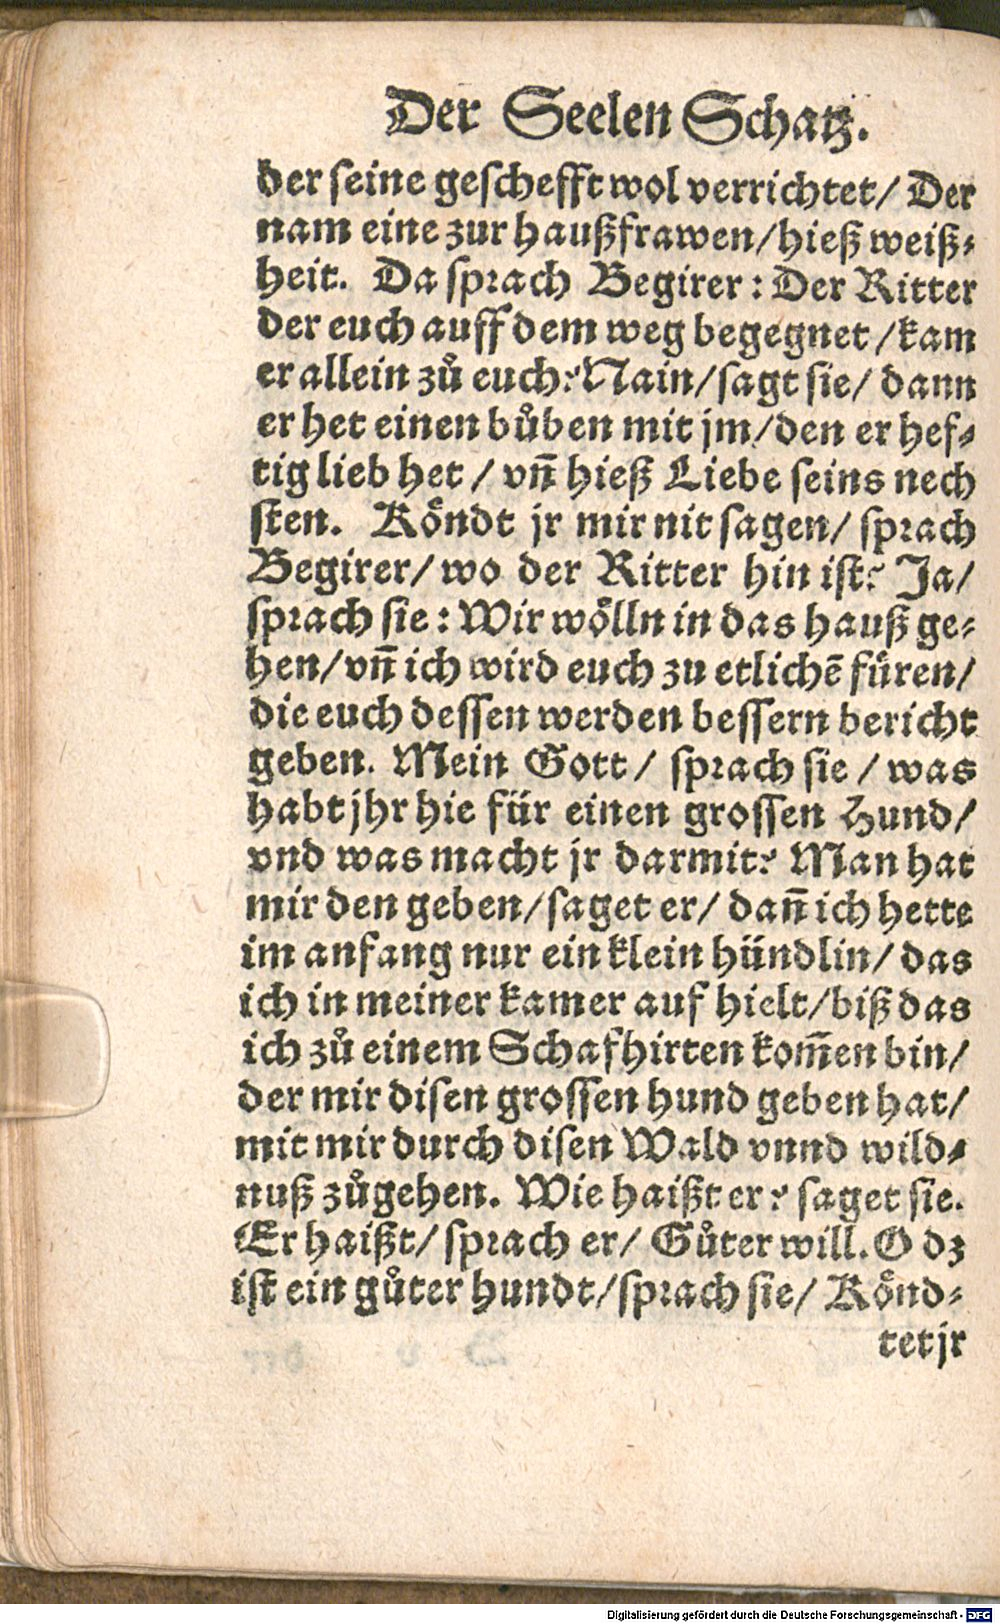 Der Seelen Schatz.
der seine geschefft wol verrichtet/ Der
nam eine zur haußfrawen/hieß weiß⸗
heit. Da sprach Begirer: Der Ritter
der euch auff dem weg begegnet/kam
er allein zů euch? Nain/sagt sie/ dann
er het einen bůben mit jm/den er hef⸗
tig lieb het / vn̄ hieß Liebe seins nech
sten. Koͤndt jr mir nit sagen/ sprach
Begirer/ wo der Ritter hin ist? Ja/
sprach sie: Wir woͤlln in das hauß ge⸗
hen/vn̄ ich wird euch zu etlichē fuͤren/
die euch dessen werden bessern bericht
geben. Mein Gott/ sprach sie / was
habt jhr hie für einen grossen Hund/
vnd was macht jr darmit? Man hat
mir den geben/saget er/ dan̄ ich hette
im anfang nur ein klein hündlin/ das
ich in meiner kamer auf hielt/biß das
ich zů einem Schafhirten kom̄en bin/
der mir disen grossen hund geben hat/
mit mir durch disen Wald vnnd wild⸗
nuß zůgehen. Wie haißt er? saget sie.
Er haißt/ sprach er/ Gůter will. O dz
ist ein gůter hundt/sprach sie/ Koͤnd⸗
tet jr
Digitalisierung gefördert durch die Deutsche Forschungsgemeinschaft - DFG